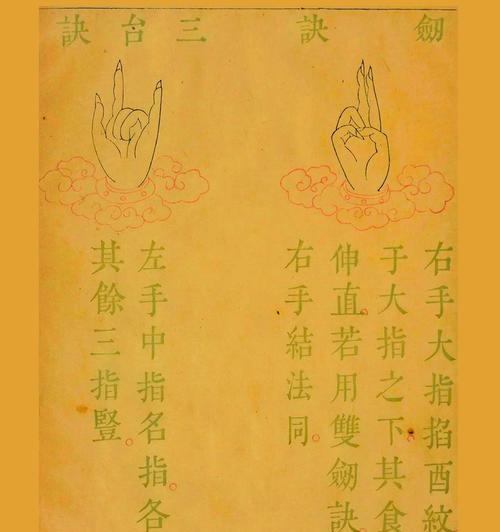 劒訣
右手大指掐酉紋
于大指之下。其食
伸直。若用雙劒訣。
右手結法同。
三台訣
左手中指名指。各
其餘三指豎。